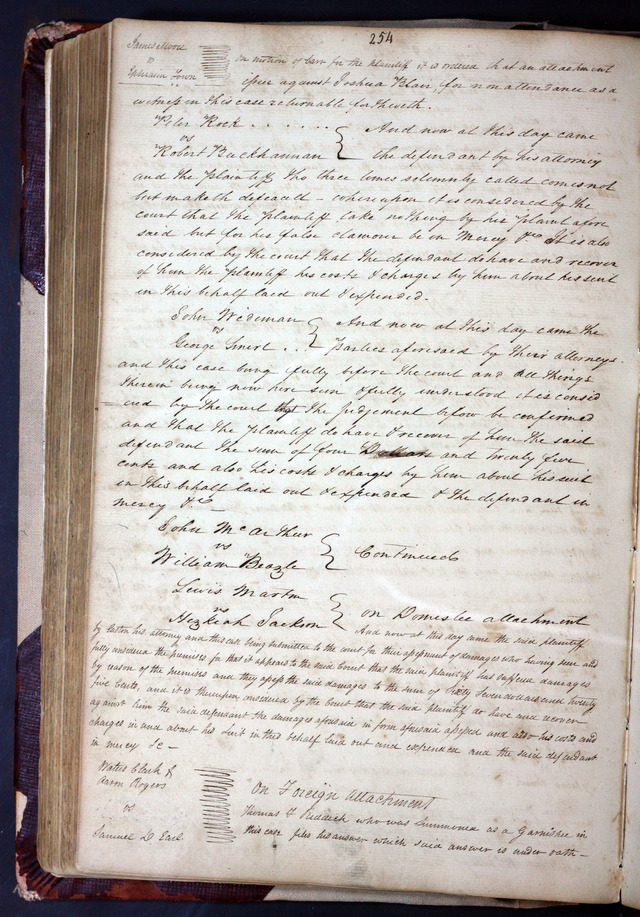 254
James Wood
vs
Ephraim Town
on motion of Carr for the plaintiff it is ordered that an attachment
issue against Joshua Blair, for non attendance as a
witness in this case returnable forthwith.
Peter Rock . . . . . . And now at this day came
vs
Robert Buckhannan the defendant by his attorney
and the plaintiff tho three times solemnly called comes not
but maketh default – whereupon it is considered by the
court that the plaintiff take nothing by his plaint afore
said but for his false clamour be in Mercy &c It is also
considered by the court that the defendant do have and recover
of him the plaintiff his costs & charges by him about his suit
in this behalf laid out & expended.
John Wideman And now at this day came the
vs
George Smirl . . . parties aforesaid by their attorneys.
and this case being fully before the court and all things
therein being now here seen & fully understood it is consid
ered by the court that the Judgement below be confirmed
and that the plaintiff do have & recover of him the said
defendant the sum of four Dollars and twenty five
cents and also his costs & charges by him about his suit
in this behalf laid out & expended & the defendant in
mercy &c
John Mc arthur
vs
William Beazle Continued
Lewis Martin
vs
Hezkeah Jackson on Domestec attachment
And now at this day came the said plaintiff
by Easton his attorney and this case being submitted to the court for their assessment of damages who having seen and
fully considered the premises for that it appears to the said Court that the said plaintiff has suffered damages
by reason of the premises and they assess the said damages to the sum of Sixty Seven dollars and twenty
five Cents, and it is thereupon considered by the Court that the said plaintiff do have and recover
against him the said defendant the damages aforesaid in form aforesaid assessed and also his costs and
charges in and about his Suit in this behalf laid out and expended and the said defendant
in mercy &c –
Waters Clark &
Aaron Rogers
vs
Samuel D Earl
On Foreign Attachment
Thomas F Riddick who was Summoned as a Garnishee in
this case files his answer which said answer is under oath –